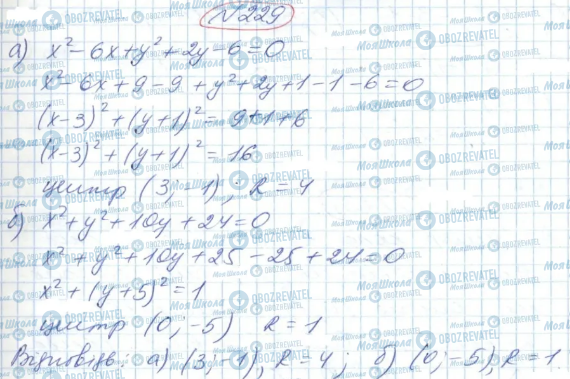 №229
а) x² - 6x + y² + 2y - 6 = 0
x² - 6x + 9 - 9 + y² + 2y + 1 - 1 - 6 = 0
(x-3)² + (y+1)² = 9+1+6
(x-3)² + (y+1)² = 16
центр (3; -1); R = 4
б) x² + y² + 10y + 24 = 0
x² + y² + 10y + 25 - 25 + 24 = 0
x² + (y+5)² = 1
центр (0; -5) R = 1
Відповідь: а) (3; -1), R = 4; б) (0; -5), R = 1
МояШкола OBOZREVATEL